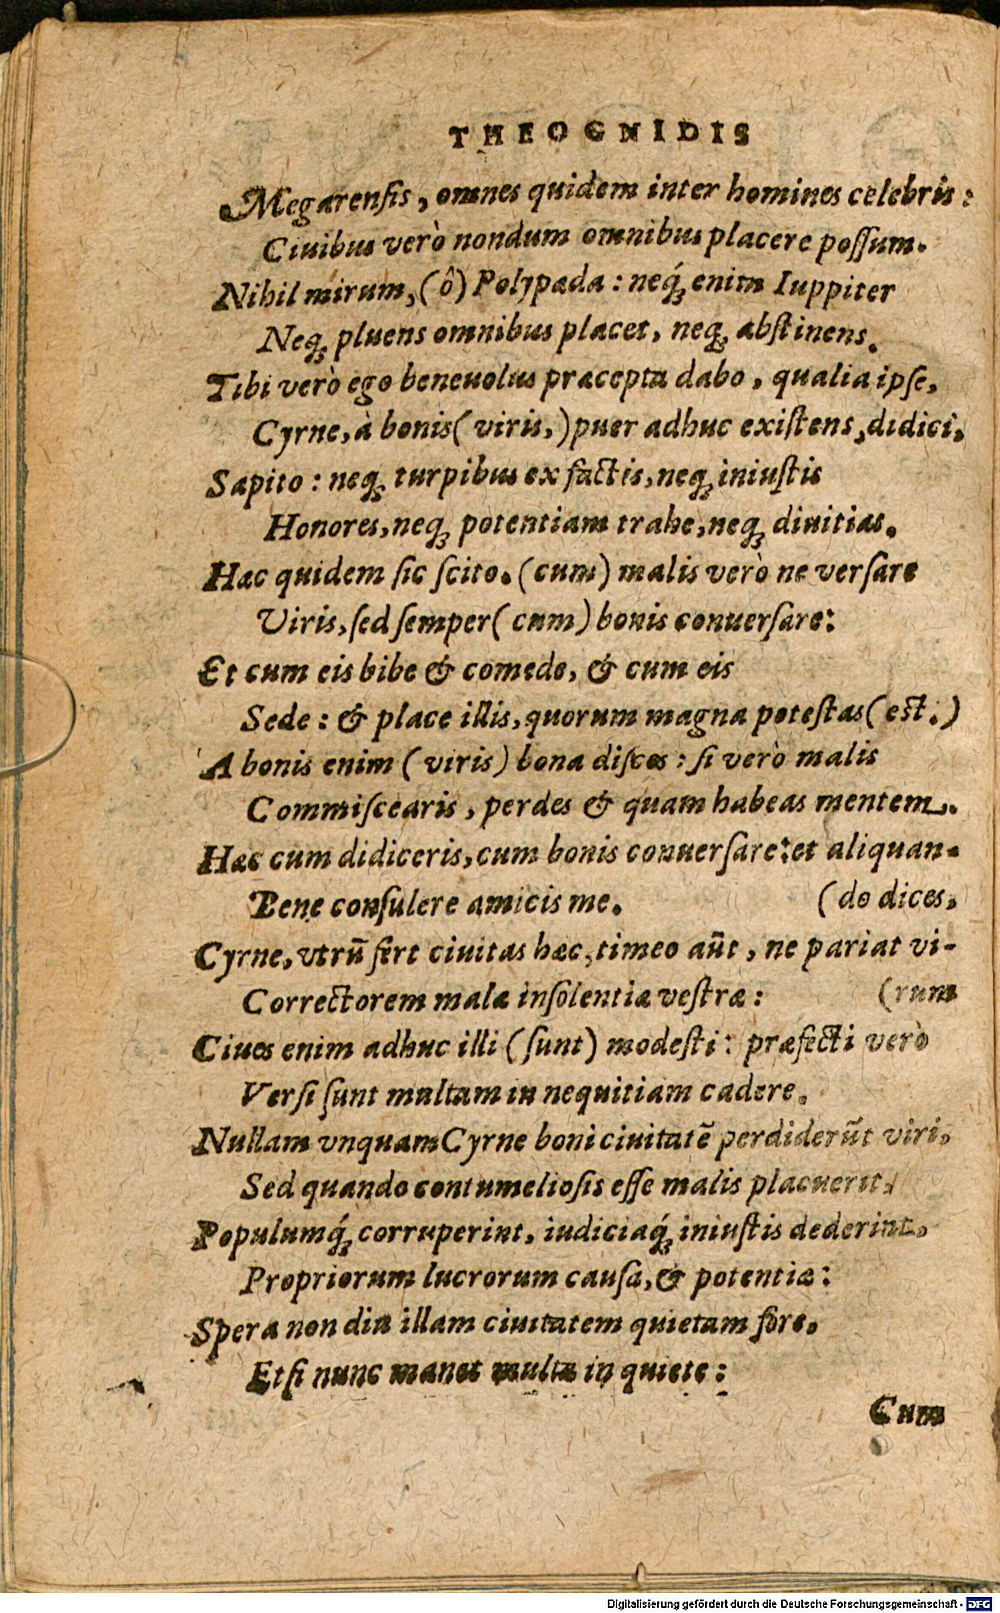 THEOGNIDIS
Megarensis, omnes quidem inter homines celebris:
Ciuibus verò nondum omnibus placere possum.
Nihil mirum, (ô) Polypada: neq́ꝫ enim Iuppiter
Neqꝫ pluens omnibus placet, neqꝫ abstinens.
Tibi verò ego beneuolus præcepta dabo, qualia ipse,
Cyrne, à bonis (viris,) puer adhuc existens, didici.
Sapito: neqꝫ turpibus ex factis, neqꝫ iniustis
Honores, neqꝫ potentiam trahe, neqꝫ diuitias.
Hæc quidem sic scito. (cum) malis verò ne versare
Viris, sed semper (cum) bonis conuersare:
Et cum eis bibe & comede, & cum eis
Sede: & place illis, quorum magna potestas (est.)
A bonis enim (viris) bona disces: si verò malis
Commiscearis, perdes & quam habeas mentem.
Hæc cum didiceris, cum bonis conuersare: et aliquan-
Bene consulere amicis me. (do dices,
Cyrne, vtrũ fert ciuitas hæc, timeo aũt, ne pariat vi-
Correctorem malæ insolentiæ vestræ: (rum
Ciues enim adhuc illi (sunt) modesti: præfecti verò
Versi sunt multam in nequitiam cadere.
Nullam vnquam Cyrne boni ciuitatẽ perdiderũt viri,
Sed quando contumeliosis esse malis placuerit,
Populumq́ꝫ corruperint, iudiciaq́ꝫ iniustis dederint,
Propriorum lucrorum causa, & potentiæ:
Spera non diu illam ciuitatem quietam fore.
Etsi nunc manet multa in quiete:
Cum
Digitalisierung gefördert durch die Deutsche Forschungsgemeinschaft - DFG